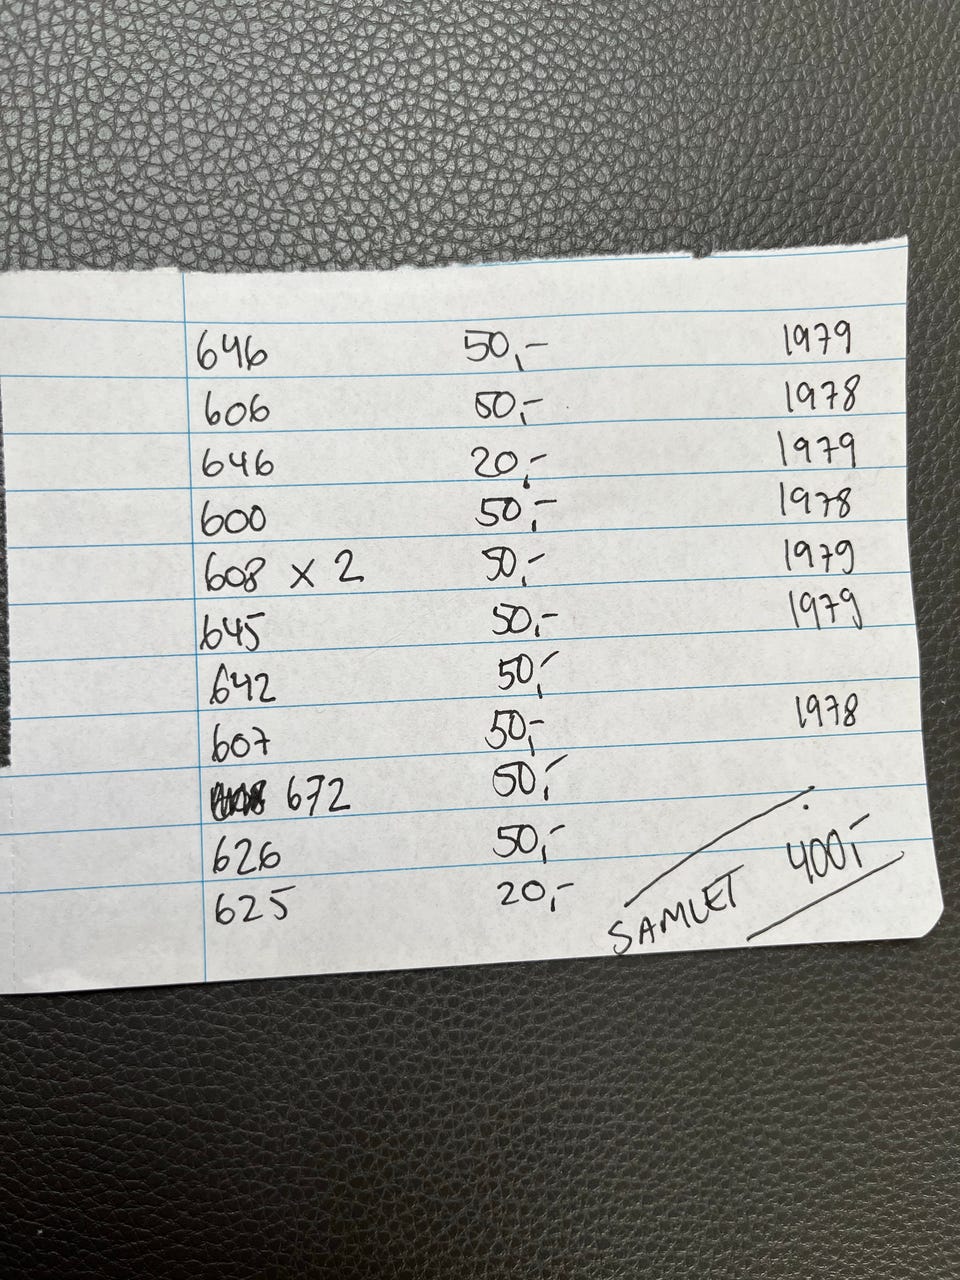 646 50,- 1979
606 50,- 1978
646 20,- 1979
600 50,- 1978
608 x 2 50,- 1979
645 50,- 1979
642 50,-
607 50,- 1978
672 50,-
626 50,-
625 20,-
SAMLET 400,-